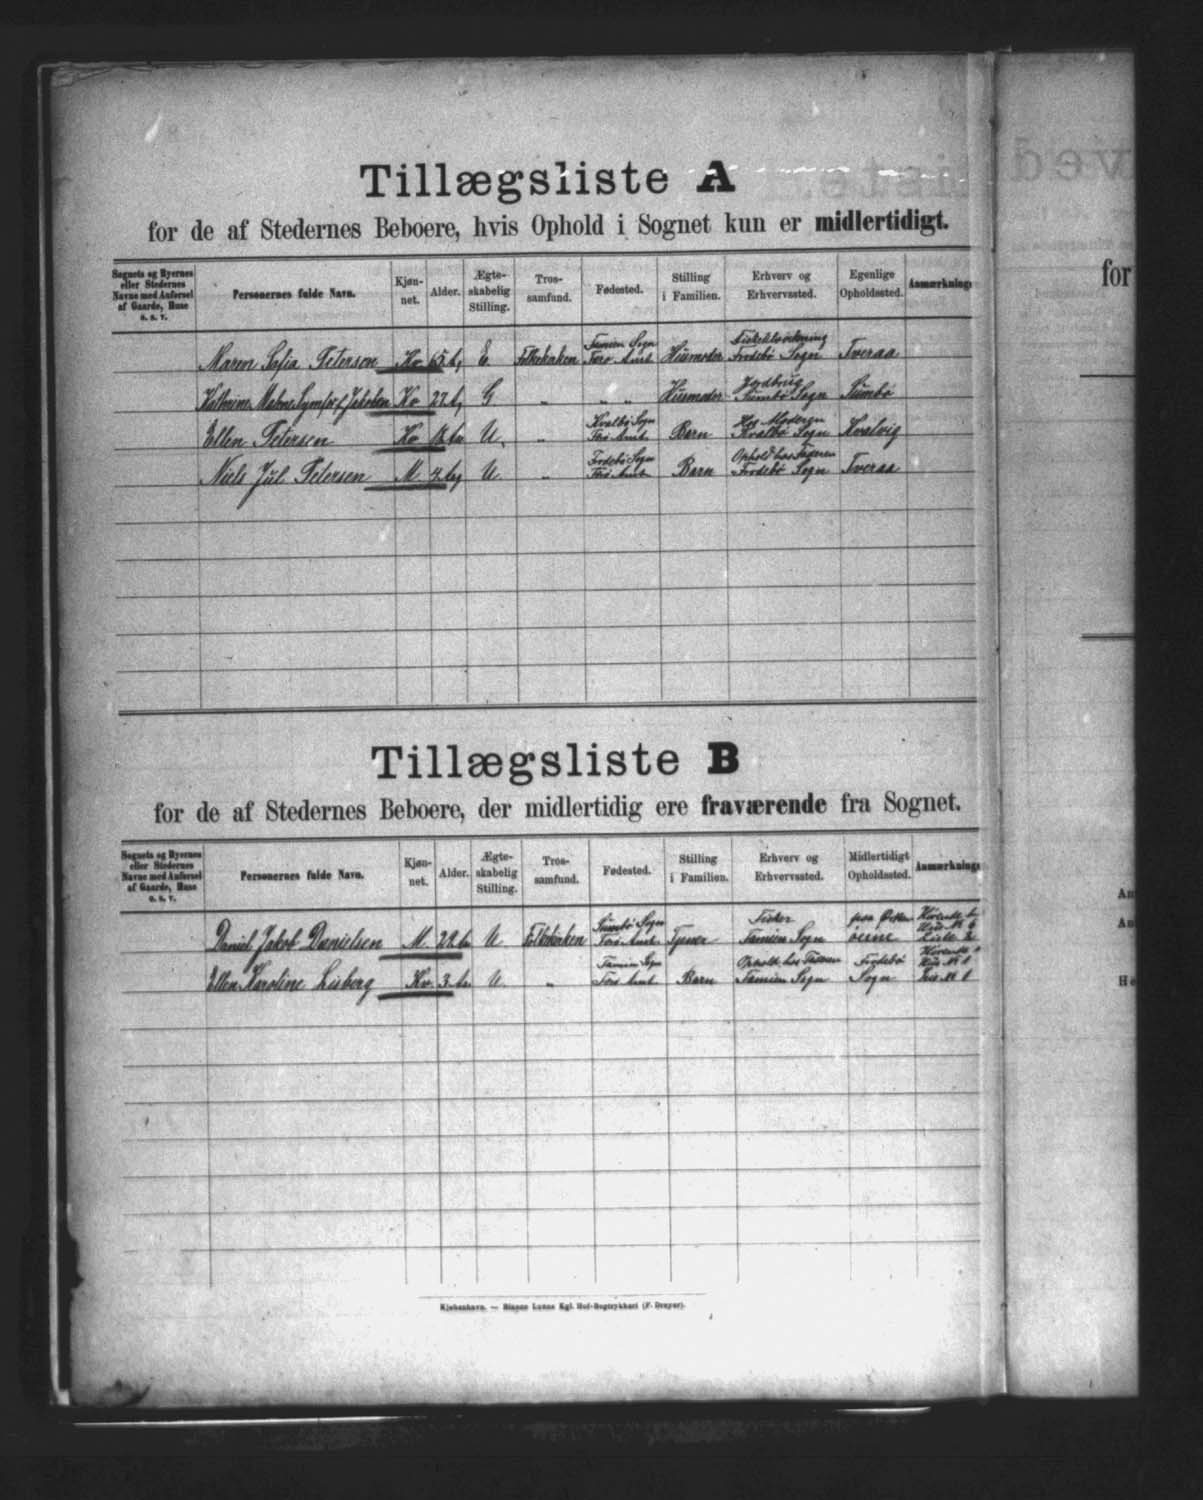 Tillægsliste A
for de af Stedernes Beboere, hvis Ophold i Sognet kun er midlertidigt.
Sognets og Byernes eller Stedernes Navne med Anførsel af Gaarde, Huse o. s. v. Personernes fulde Navn. Kjøn-net. Alder. Ægte-skabelig Stilling. Tros-samfund. Fødested. Stilling i Familien. Erhverv og Erhvervssted. Egenlige Opholdssted. Anmærkning
Maren Sofia Petersen Kv. 65 E. Folkekirken Famien Sogn Færø Amt Husmoder Frodebø Sogn Tveraa
Jakobsen Kv 27 G " " " Husmoder Jordbrug Sumbø Sogn Sumbø
Ellen Petersen Kv U. " Kvalbø Sogn Færø Amt Barn Hos Moderen Kvalbø Sogn Kvalvig
Niels Jul. Petersen M. 4 U " Frodebø Sogn Færø Amt Barn Ophold hos Faderen Frodebø Sogn Tveraa
Tillægsliste B
for de af Stedernes Beboere, der midlertidig ere fraværende fra Sognet.
Sognets og Byernes eller Stedernes Navne med Anførsel af Gaarde, Huse o. s. v. Personernes fulde Navn. Kjøn-net. Alder. Ægte-skabelig Stilling. Tros-samfund. Fødested. Stilling i Familien. Erhverv og Erhvervssted. Midlertidigt Opholdssted. Anmærkning
Daniel Jakob Danielsen M. U Folkekirken Sumbø Sogn Færø Amt Tjener Fisker Famien Sogn paa øerne
Ellen Karoline Lisberg Kv. 3 U. " Famien Sogn Færø Amt Barn Ophold hos Faderen Famien Sogn Frodebø Sogn
Kjøbenhavn. — Bianco Lunos Kgl. Hof-Bogtrykkeri (F. Dreyer).
for